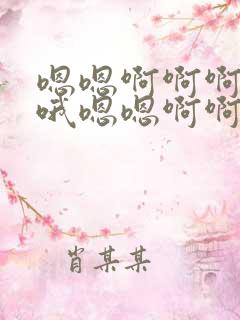 嗯嗯啊啊啊
哦嗯嗯啊啊
肖某某